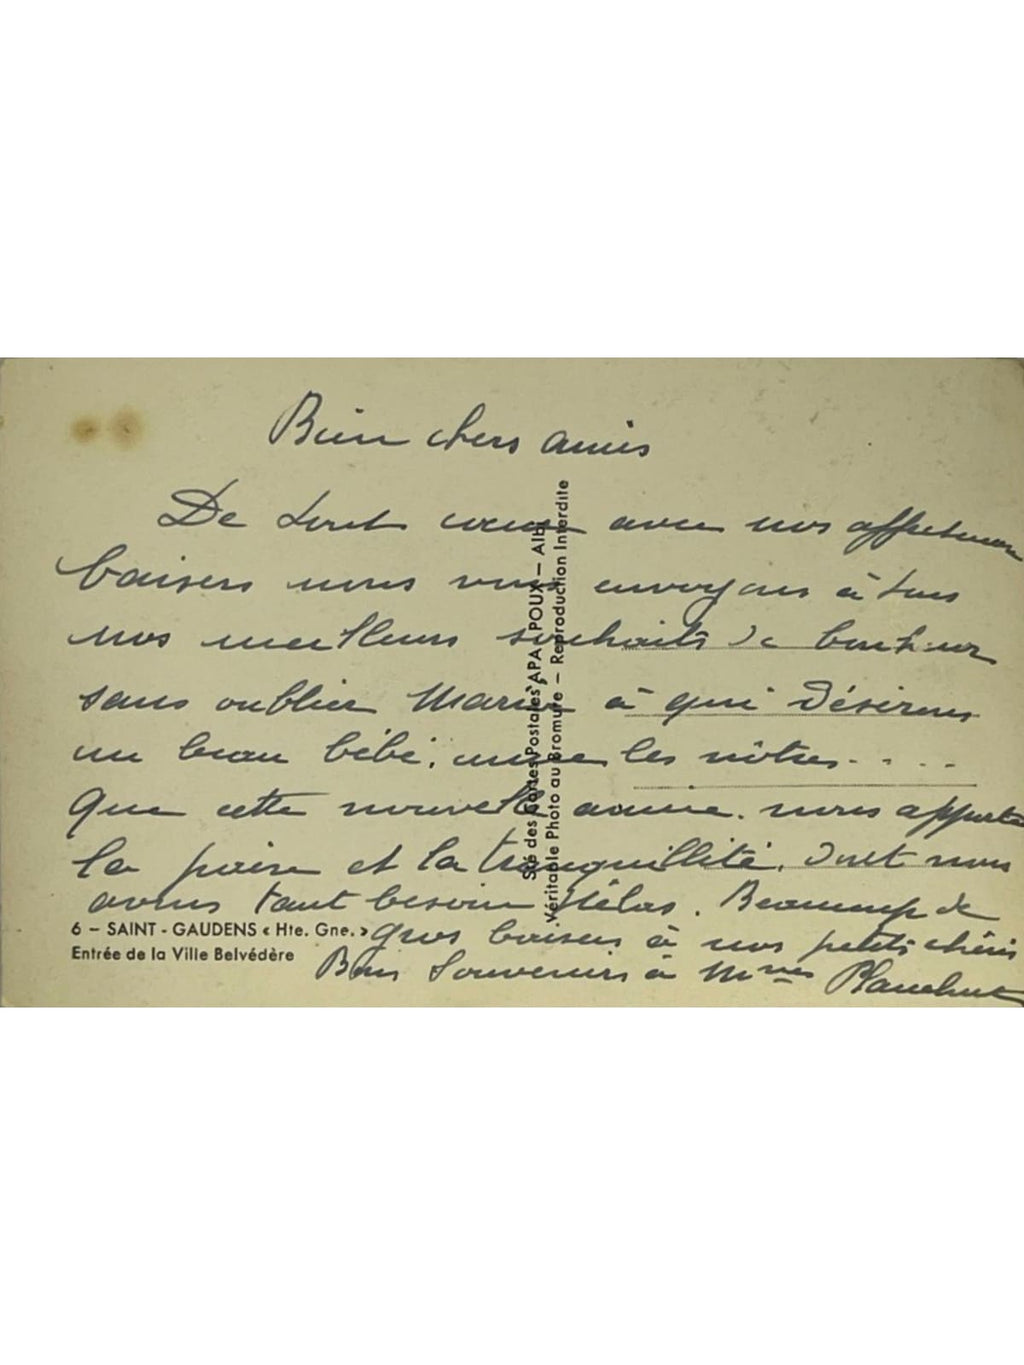 Bien chers amis
De tout coeur avec nos affectueux
baisers nous vous envoyons à tous
nos meilleurs souhaits de bonheur
sans oublier Marie à qui désirons
un beau bébé, les nôtres....
Que cette nouvelle année nous apporte
la paix et la tranquillité, dont nous
avons tant besoin Hélas. Beaucoup de
gros baisers à nos petits chéris
Bons Souvenirs à Mmes
6 – SAINT - GAUDENS « Hte. Gne. »
Entrée de la Ville Belvédère
Sté des Cartes Postales APA - POUX – Albi
Véritable Photo au Bromure – Reproduction Interdite